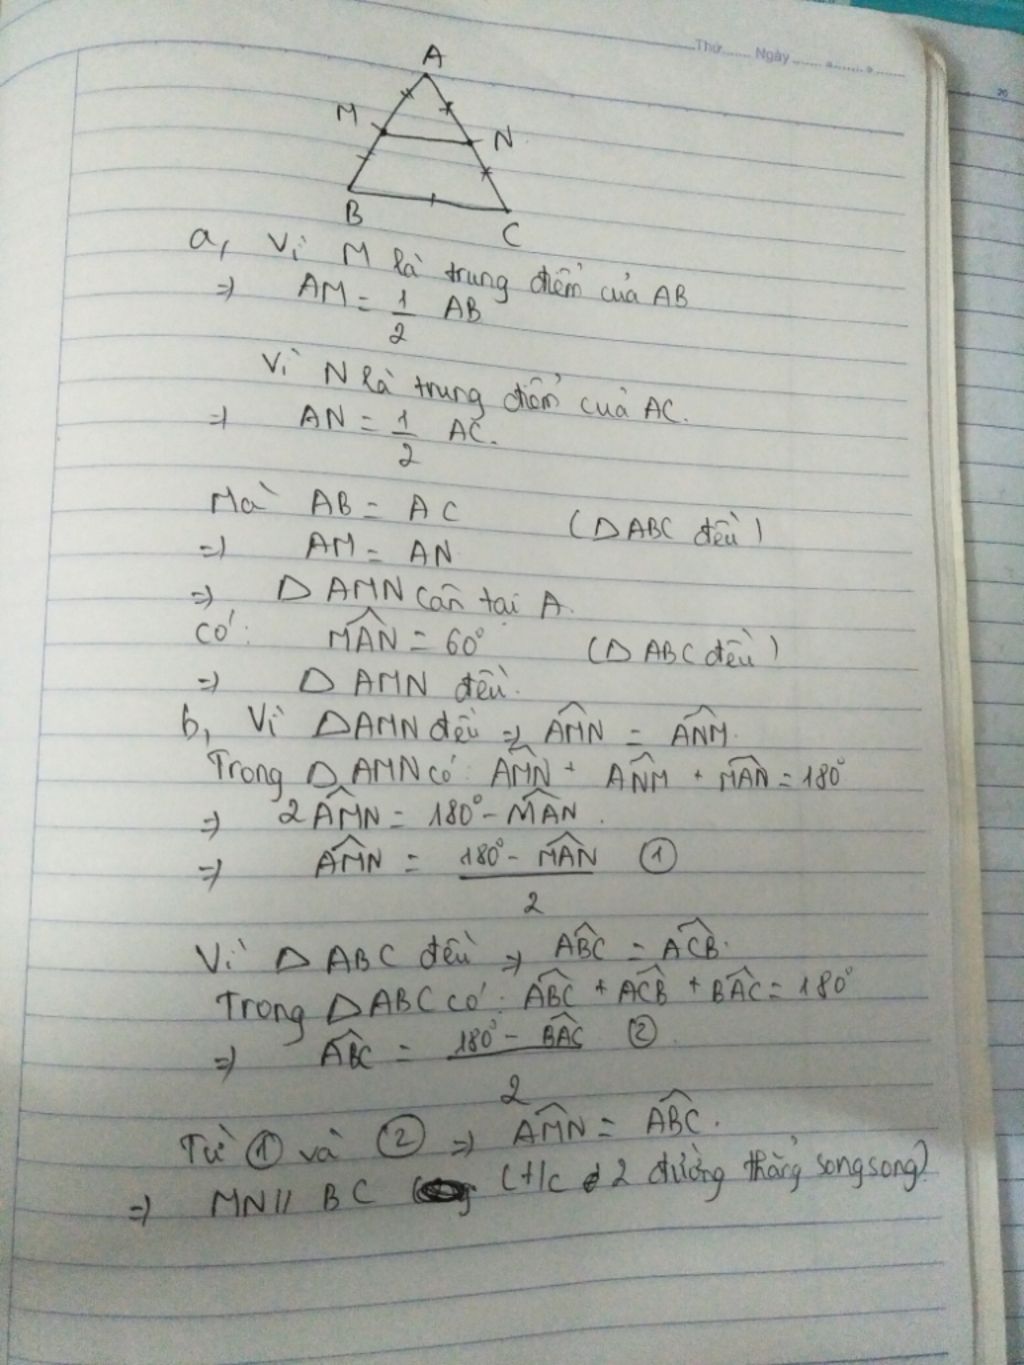 Thứ....... Ngày .......
20
A
M
N
B
C
a, Vì M là trung điểm của AB
=> AM = 1/2 AB
Vì N là trung điểm của AC.
=> AN = 1/2 AC.
Mà AB = AC (Δ ABC đều)
=> AM = AN
=> Δ AMN cân tại A.
Có: MAN̂ = 60° (Δ ABC đều)
=> Δ AMN đều.
b, Vì ΔAMN đều => AMN̂ = ANM̂.
Trong Δ AMN có: AMN̂ + ANM̂ + MAN̂ = 180°
=> 2AMN̂ = 180° - MAN̂.
=> AMN̂ = (180° - MAN̂)/2 ①
Vì Δ ABC đều => ABĈ = ACB̂.
Trong ΔABC có: ABĈ + ACB̂ + BAĈ = 180°
=> ABĈ = (180° - BAĈ)/2 ②.
Từ ① và ② => AMN̂ = ABĈ.
=> MN // BC (t/c 2 đường thẳng song song)